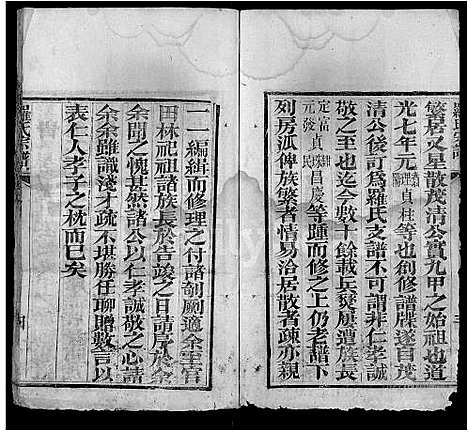 繁居又星散茂清公實九甲之始祖也道
光七年元 貞柱等也創修譜牒遂自茂
清公後訂爲羅氏支譜不可謂非仁孝誠
敬之至也迄今數十餘載兵燹旗遭族長
定富 貞 昌慶等踵而修之上仍老譜下
元發 民
列房派俾族繁者情易洽居散者疎亦親
一一編緝而修理之付諸剞劂適余至官
田林祀祖諸族長於告竣之日請序於余
余聞之愧甚然諸公以仁孝誠敬之心請
余余雖識淺才疏不堪勝任聊贈數言以
表仁人孝子之忱而已矣
羅氏宗譜